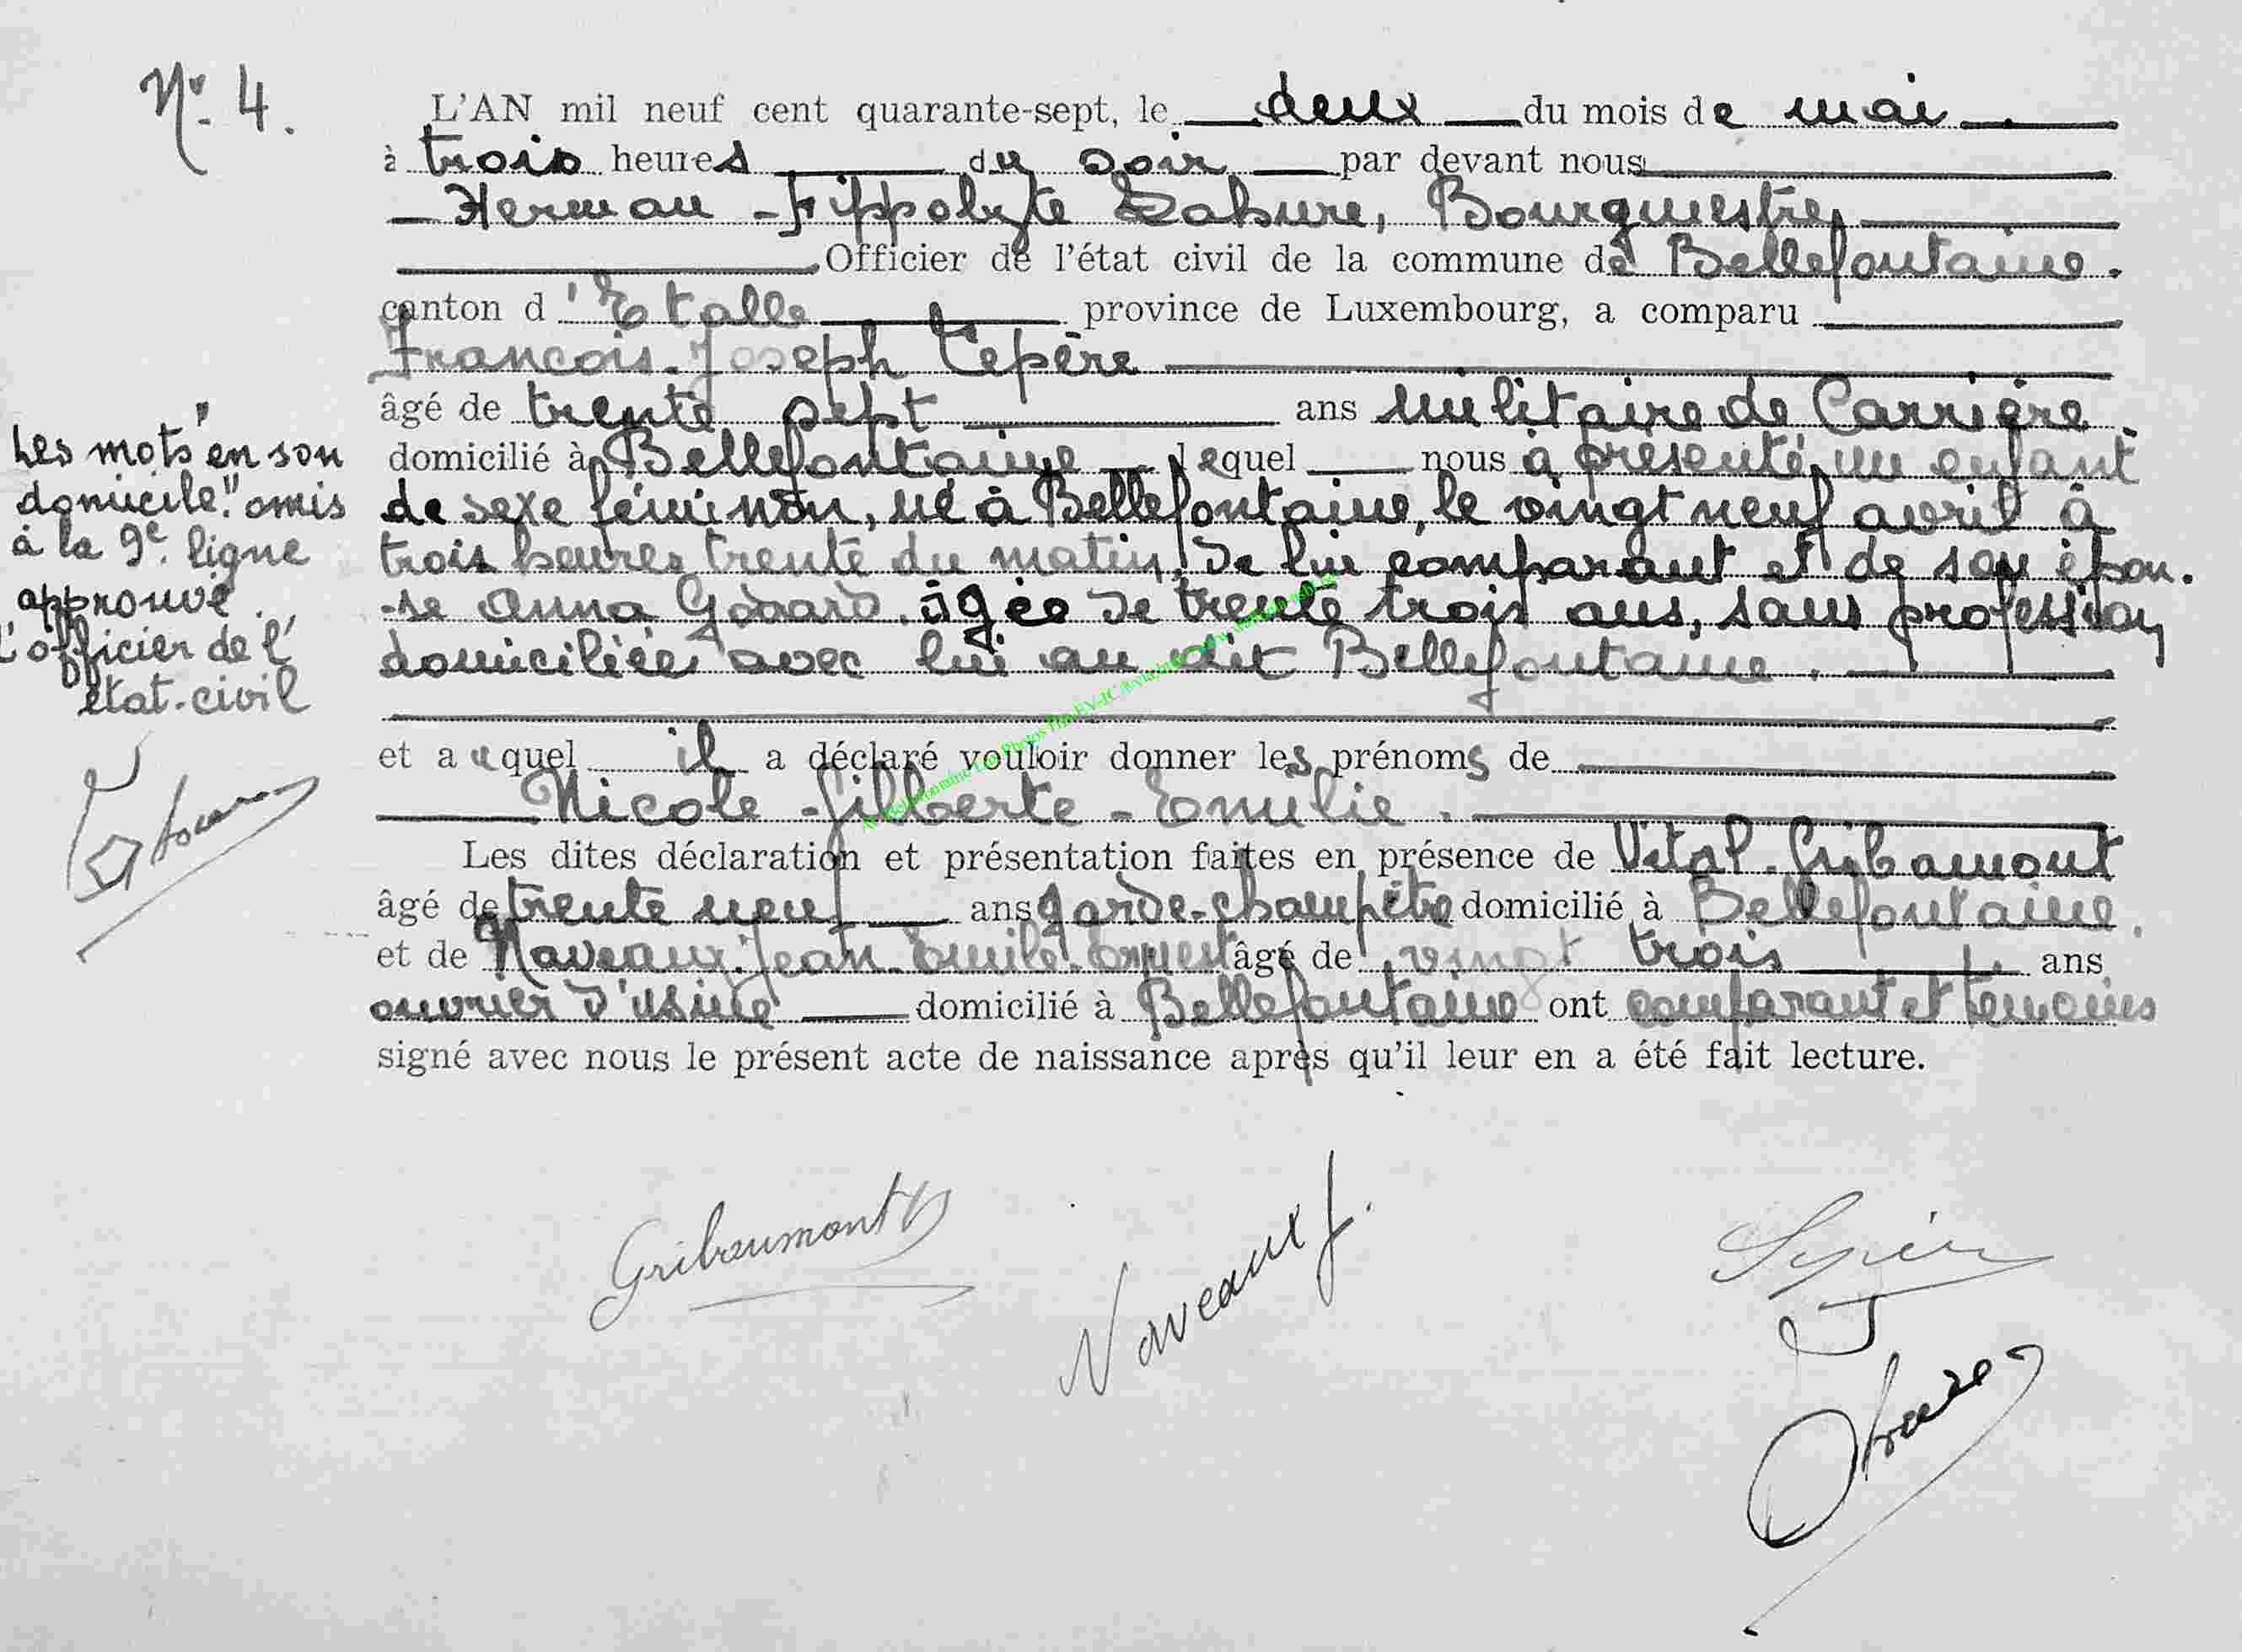 N° 4.
L'AN mil neuf cent quarante-sept, le deux du mois de mai
à trois heures du soir par devant nous
Herman - Hippolyte Lahure, Bourgmestre
Officier de l'état civil de la commune de Bellefontaine.
canton d'Etalle province de Luxembourg, a comparu
François-Joseph Lepère
âgé de trente sept ans militaire de Carrière
domicilié à Bellefontaine lequel nous a présenté un enfant
de sexe féminin, né à Bellefontaine, le vingt neuf avril à
trois heures trente du matin, de lui comparant et de son épou-
-se Anna Godard, âgée de trente trois ans, sans profession
domiciliée avec lui au dit Bellefontaine.
et auquel il a déclaré vouloir donner les prénoms de
Nicole - Gilberte - Emilie.
Les dites déclaration et présentation faites en présence de Vital Gribamont
âgé de trente neuf ans garde-champêtre domicilié à Bellefontaine.
et de Naveaux Jean-Emile-Ernest âgé de vingt trois ans
ouvrier d'usine domicilié à Bellefontaine ont comparant et témoins
signé avec nous le présent acte de naissance après qu'il leur en a été fait lecture.
Les mots "en son
domicile" omis
à la 9e ligne
approuvé.
L'officier de l'
état-civil
Gribaumont
Naveaux J.